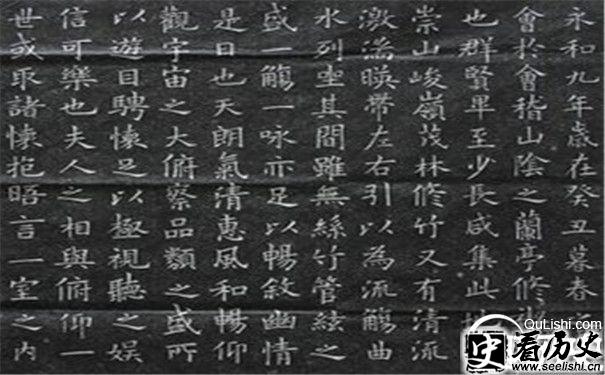 永和九年歲在癸丑暮春
會於會稽山陰之蘭亭修
也群賢畢至少長咸集此
崇山峻嶺茂林修竹又有清流
激湍暎帶左右引以為流觴曲
水列坐其間雖無絲竹管絃之
盛一觴一詠亦足以暢敘幽情
是日也天朗氣清惠風和暢仰
觀宇宙之大俯察品類之盛所
以遊目騁懷足以極視聽之娛
信可樂也夫人之相與俯仰一
世或取諸懷抱晤言一室之内
QuLishi.com
看历史
www.seelishi.cn